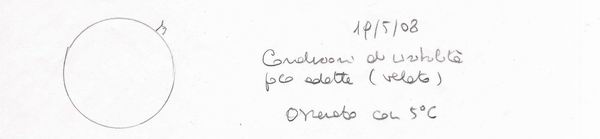 19/5/08
Condizioni di visibilità
poco adatte (velato)
Osservato con 5°C